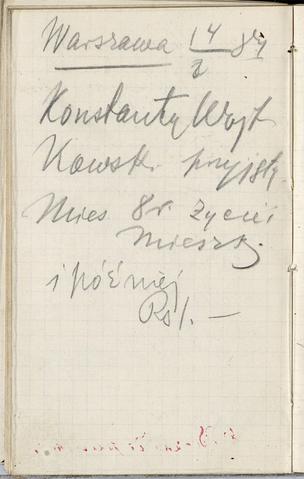 Warszawa 14/I 84
Konstanty Wojt
Kowski przyjęty
Mies 8 r. życia
mieszk.
i później
Rs1. —